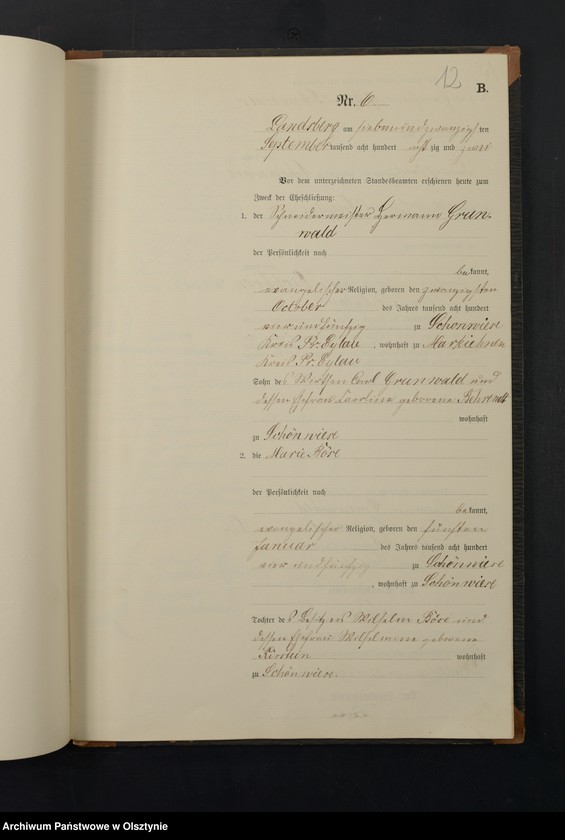 12
B.
Nr. 6
Landsberg am siebenundzwanzigsten
September tausend acht hundert achtzig und zwei
Vor dem unterzeichneten Standesbeamten erschienen heute zum
Zweck der Eheschließung:
1. der Schneidermeister Hermann Grun-
wald
der Persönlichkeit nach
bekannt,
evangelischer Religion, geboren den zwanzigsten
October des Jahres tausend acht hundert
vier und fünfzig zu Schönwiese
Kreis Pr. Eylau, wohnhaft zu
Kreis Pr. Eylau
Sohn des Wirthen Carl Grunwald und
dessen Ehefrau Caroline geborene Behrendt
wohnhaft
zu Schönwiese
2. die Marie
der Persönlichkeit nach
bekannt,
evangelischer Religion, geboren den fünften
Januar des Jahres tausend acht hundert
vier und fünfzig zu Schönwiese
, wohnhaft zu Schönwiese
Tochter des Besitzers Wilhelm und
dessen Ehefrau Wilhelmine geborene
wohnhaft
zu Schönwiese.
Archiwum Państwowe w Olsztynie